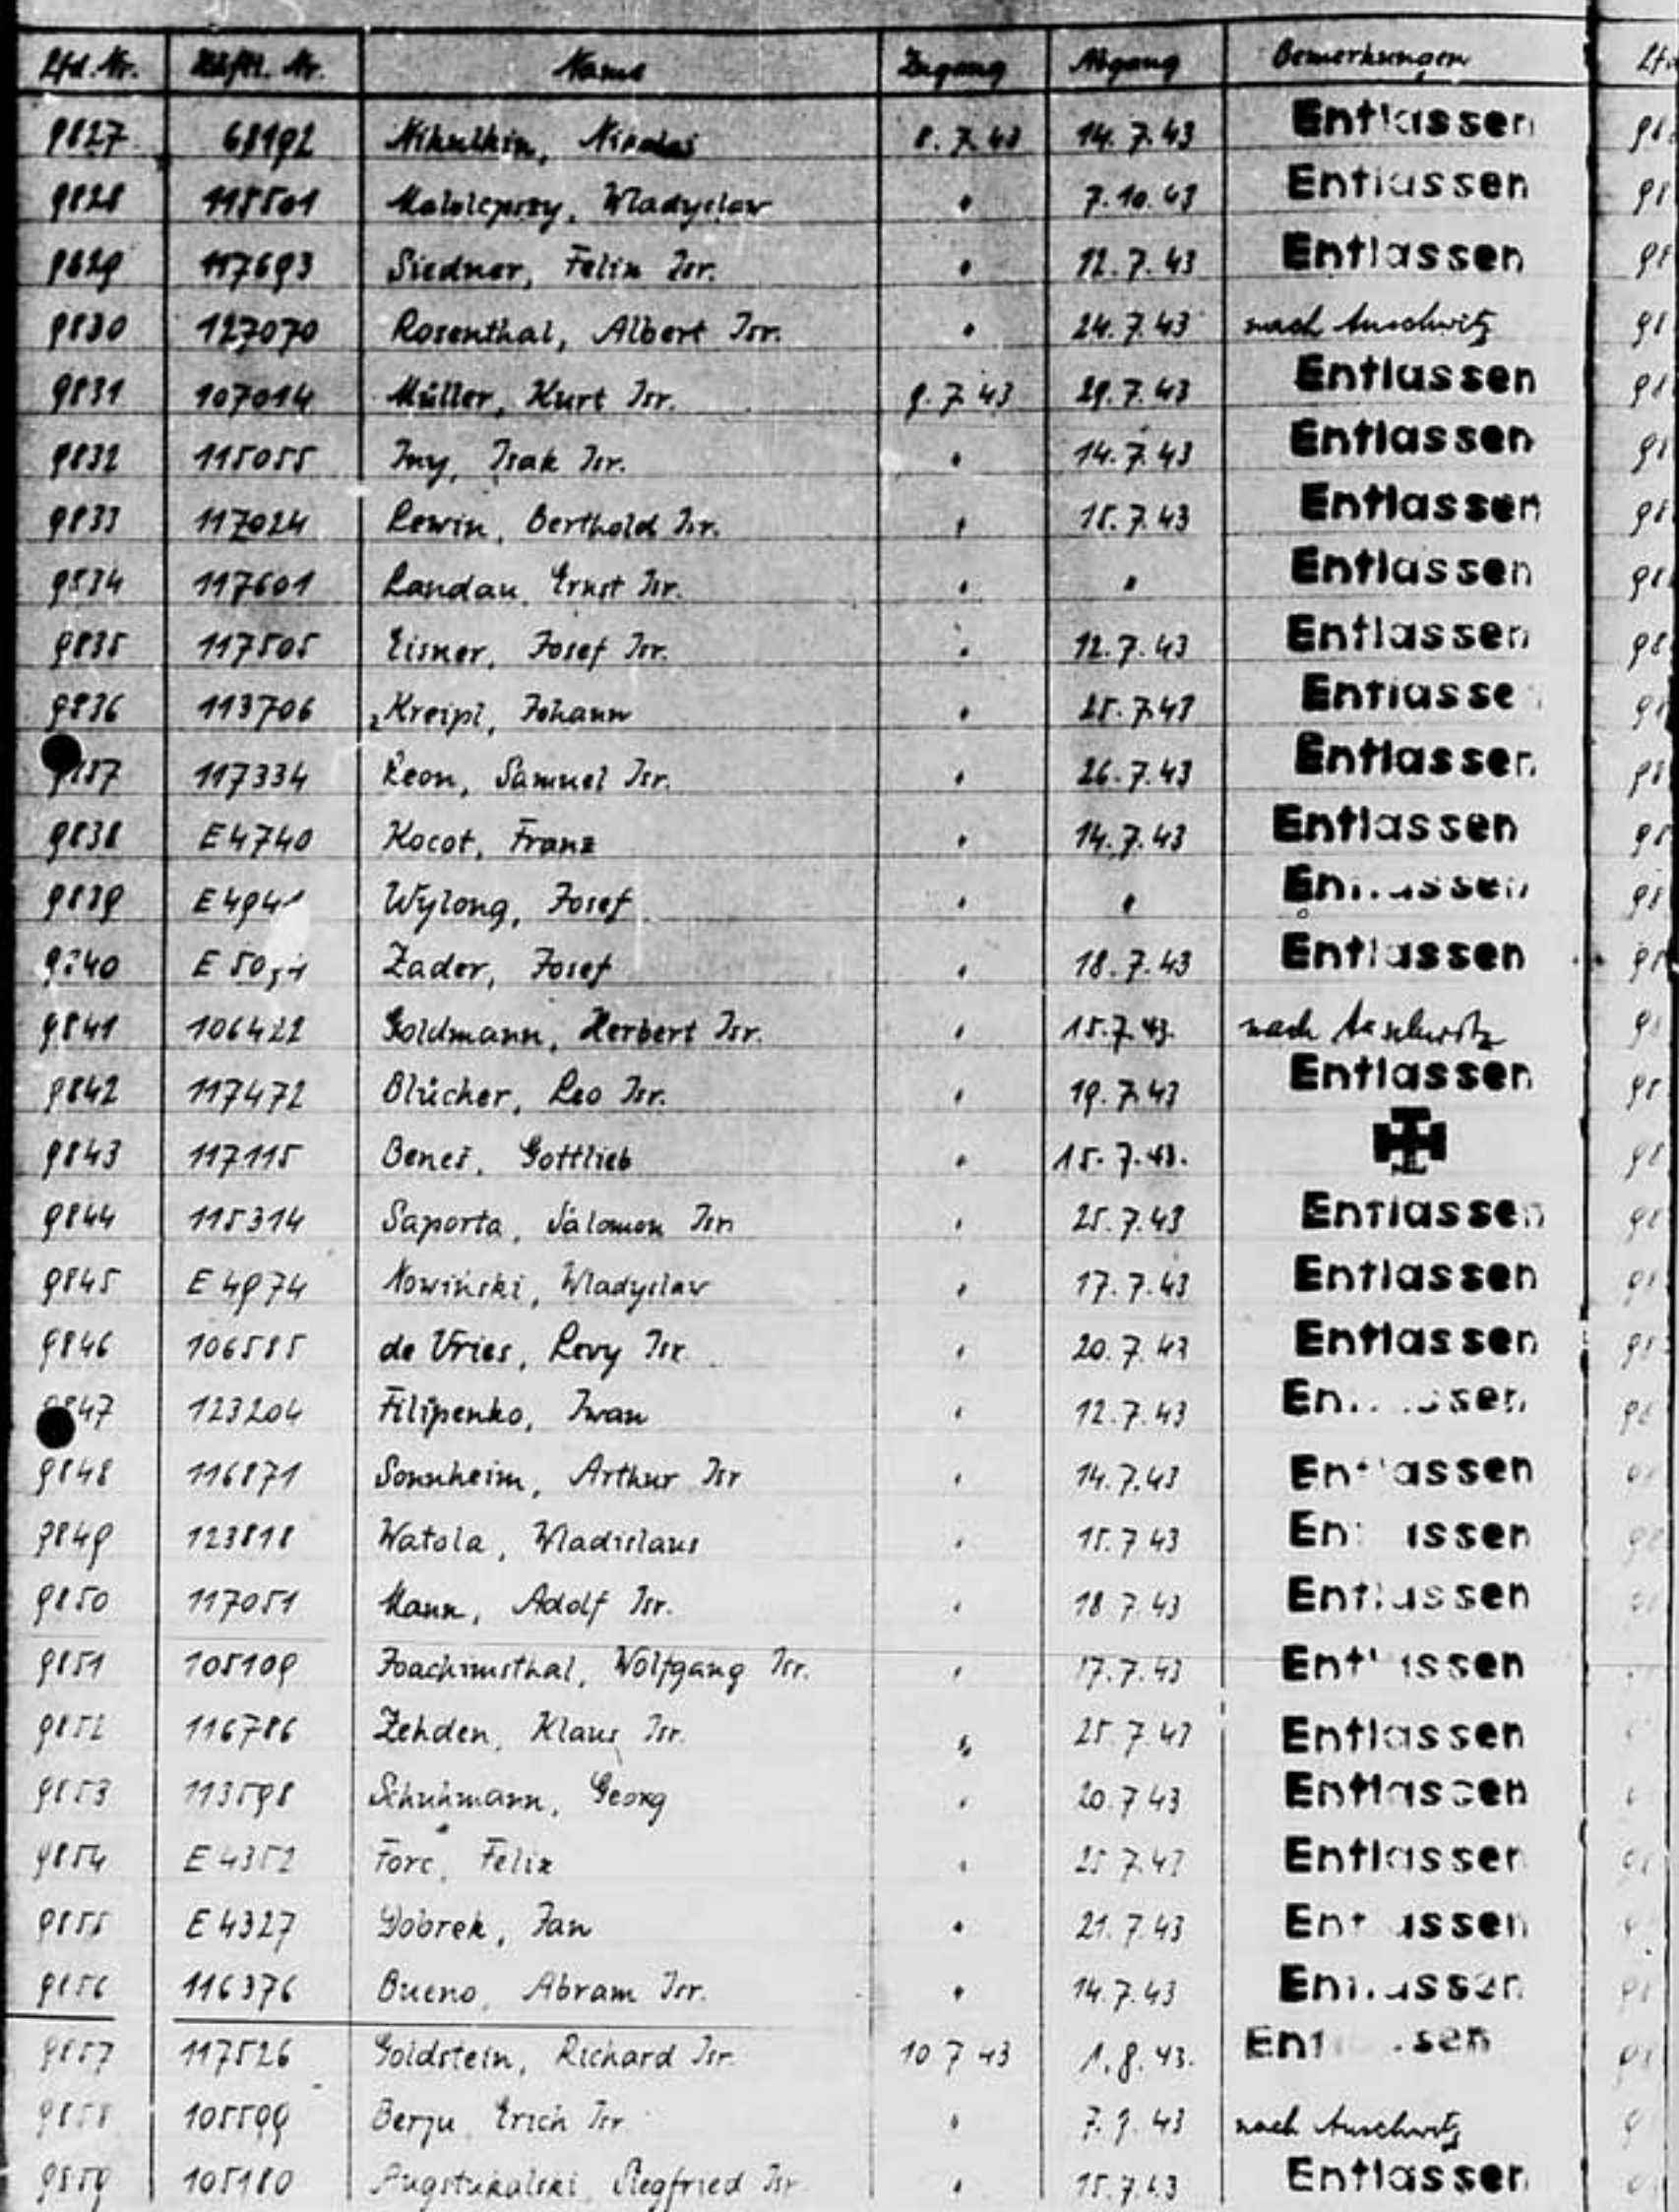 Lfd. Nr. Häftl. Nr. Name Zugang Abgang Bemerkungen
9827 68192 Nikulkin, Nikolai 8.7.43 14.7.43 Entlassen
9828 118501 Malolepszy, Wladyslaw " 7.10.43 Entlassen
9829 117693 Siedner, Felix Isr. " 12.7.43 Entlassen
9830 127070 Rosenthal, Albert Isr. " 24.7.43 nach Auschwitz
9831 107014 Müller, Kurt Isr. 9.7.43 29.7.43 Entlassen
9832 115055 Isak Isr. " 14.7.43 Entlassen
9833 117024 Lewin, Berthold Isr. " 15.7.43 Entlassen
9834 117601 Landau, Ernst Isr. " " Entlassen
9835 117505 Eisner, Josef Isr. " 12.7.43 Entlassen
9836 113706 Kreipl, Johann " 25.7.43 Entlassen
9837 117334 Leon, Samuel Isr. " 26.7.43 Entlassen
9838 E 4740 Kocot, Franz " 14.7.43 Entlassen
9839 E 4941 Wylong, Josef " " Entlassen
9840 Zader, Josef " 18.7.43 Entlassen
9841 106422 Goldmann, Herbert Isr. " 15.7.43. nach Auschwitz
9842 117472 Blücher, Leo Isr. " 19.7.43 Entlassen
9843 117115 Beneš, Gottlieb " 15.7.43.
9844 115314 Saporta, Salomon Isr. " 25.7.43 Entlassen
9845 E 4974 Nowiński, Wladyslaw " 17.7.43 Entlassen
9846 106585 de Vries, Levy Isr. " 20.7.43 Entlassen
9847 123204 Filipenko, Iwan " 12.7.43 Entlassen
9848 116871 Sonnheim, Arthur Isr " 14.7.43 Entlassen
9849 123818 Watola, Wladislaus " 15.7.43 Entlassen
9850 117051 Mann, Adolf Isr. " 18.7.43 Entlassen
9851 105109 Joachimsthal, Wolfgang Isr. " 17.7.43 Entlassen
9852 116786 Zehden, Klaus Isr. " 25.7.43 Entlassen
9853 113598 Schuhmann, Georg " 20.7.43 Entlassen
9854 E 4352 Forc, Felix " 25.7.43 Entlassen
9855 E 4327 Dobrek, Jan " 21.7.43 Entlassen
9856 116376 Bueno, Abram Isr. " 14.7.43 Entlassen
9857 117526 Goldstein, Richard Isr. 10.7.43 1.8.43. Entlassen
9858 105599 Berju, Erich Isr " 7.9.43 nach Auschwitz
9859 105180 Augstukalski, Siegfried Isr " 15.7.43 Entlassen